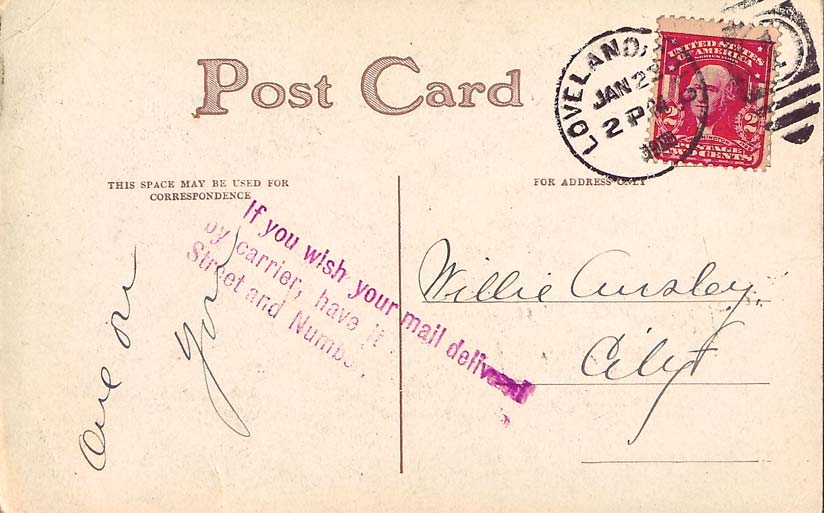 Post Card
LOVELAND,
JAN 23
2 PM
UNITED STATES
OF AMERICA
2 2
TWO CENTS
THIS SPACE MAY BE USED FOR
CORRESPONDENCE
FOR ADDRESS ONLY
If you wish your mail delivered
by carrier, have it
Street and Number.
One on
You
Willie Ansley,
City